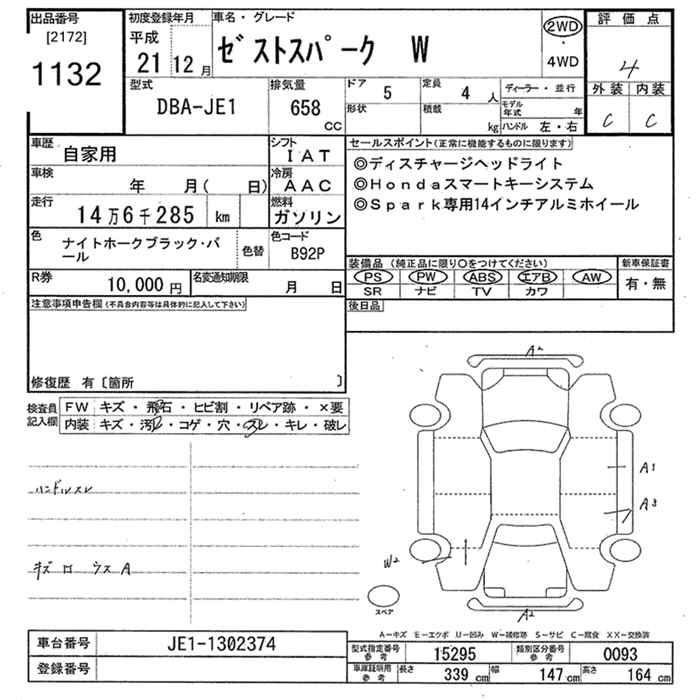 出品番号
[2172]
1132
初度登録年月
平成
21 12 月
車名・グレード
ゼストスパーク W
2WD
・
4WD
評価点
4
外装 内装
C C
型式
DBA-JE1
排気量
658
cc
ドア 5
形状
定員 4 人
積載 kg
ディーラー・並行
モデル年式 年
ハンドル 左・右
車歴
自家用
シフト
IAT
車検
年 月( 日)
冷房
AAC
走行
14万6千285 km
燃料
ガソリン
色
ナイトホークブラック・パール
色替
色コード
B92P
R券
10,000 円
名変通知期限
月 日
セールスポイント(正常に機能するものに限ります)
◎ディスチャージヘッドライト
◎Hondaスマートキーシステム
◎Spark専用14インチアルミホイール
装備品(純正品に限り○をつけてください)
PS PW ABS エアB AW
SR ナビ TV カワ
新車保証書
有・無
後日品
注意事項申告欄(不具合内容等は具体的に記入して下さい)
修復歴 有〔箇所 〕
検査員
記入欄
FW キズ・飛石・ヒビ割・リペア跡・×要
内装 キズ・汚れ・コゲ・穴・スレ・キレ・破レ
ハンドルスレ
キズ ロ ウス A
A2
A1
A3
W2
A2
スペア
A－キズ E－エクボ U－凹み W－補修跡 S－サビ C－腐食 XX－交換済
車台番号 JE1-1302374
登録番号
型式指定番号
参考
15295
類別区分番号
参考
0093
車庫証明用
参考
長さ 339 cm 幅 147 cm 高さ 164 cm